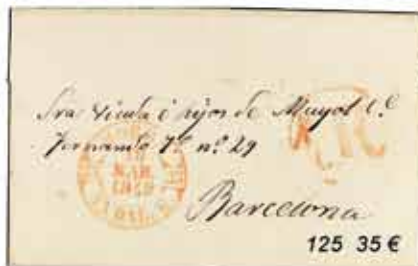 Sra Viuda é hijos de Mayol &.ª
Fernando 7º nº 29
MAR
1849
Barcelona
125 35 €